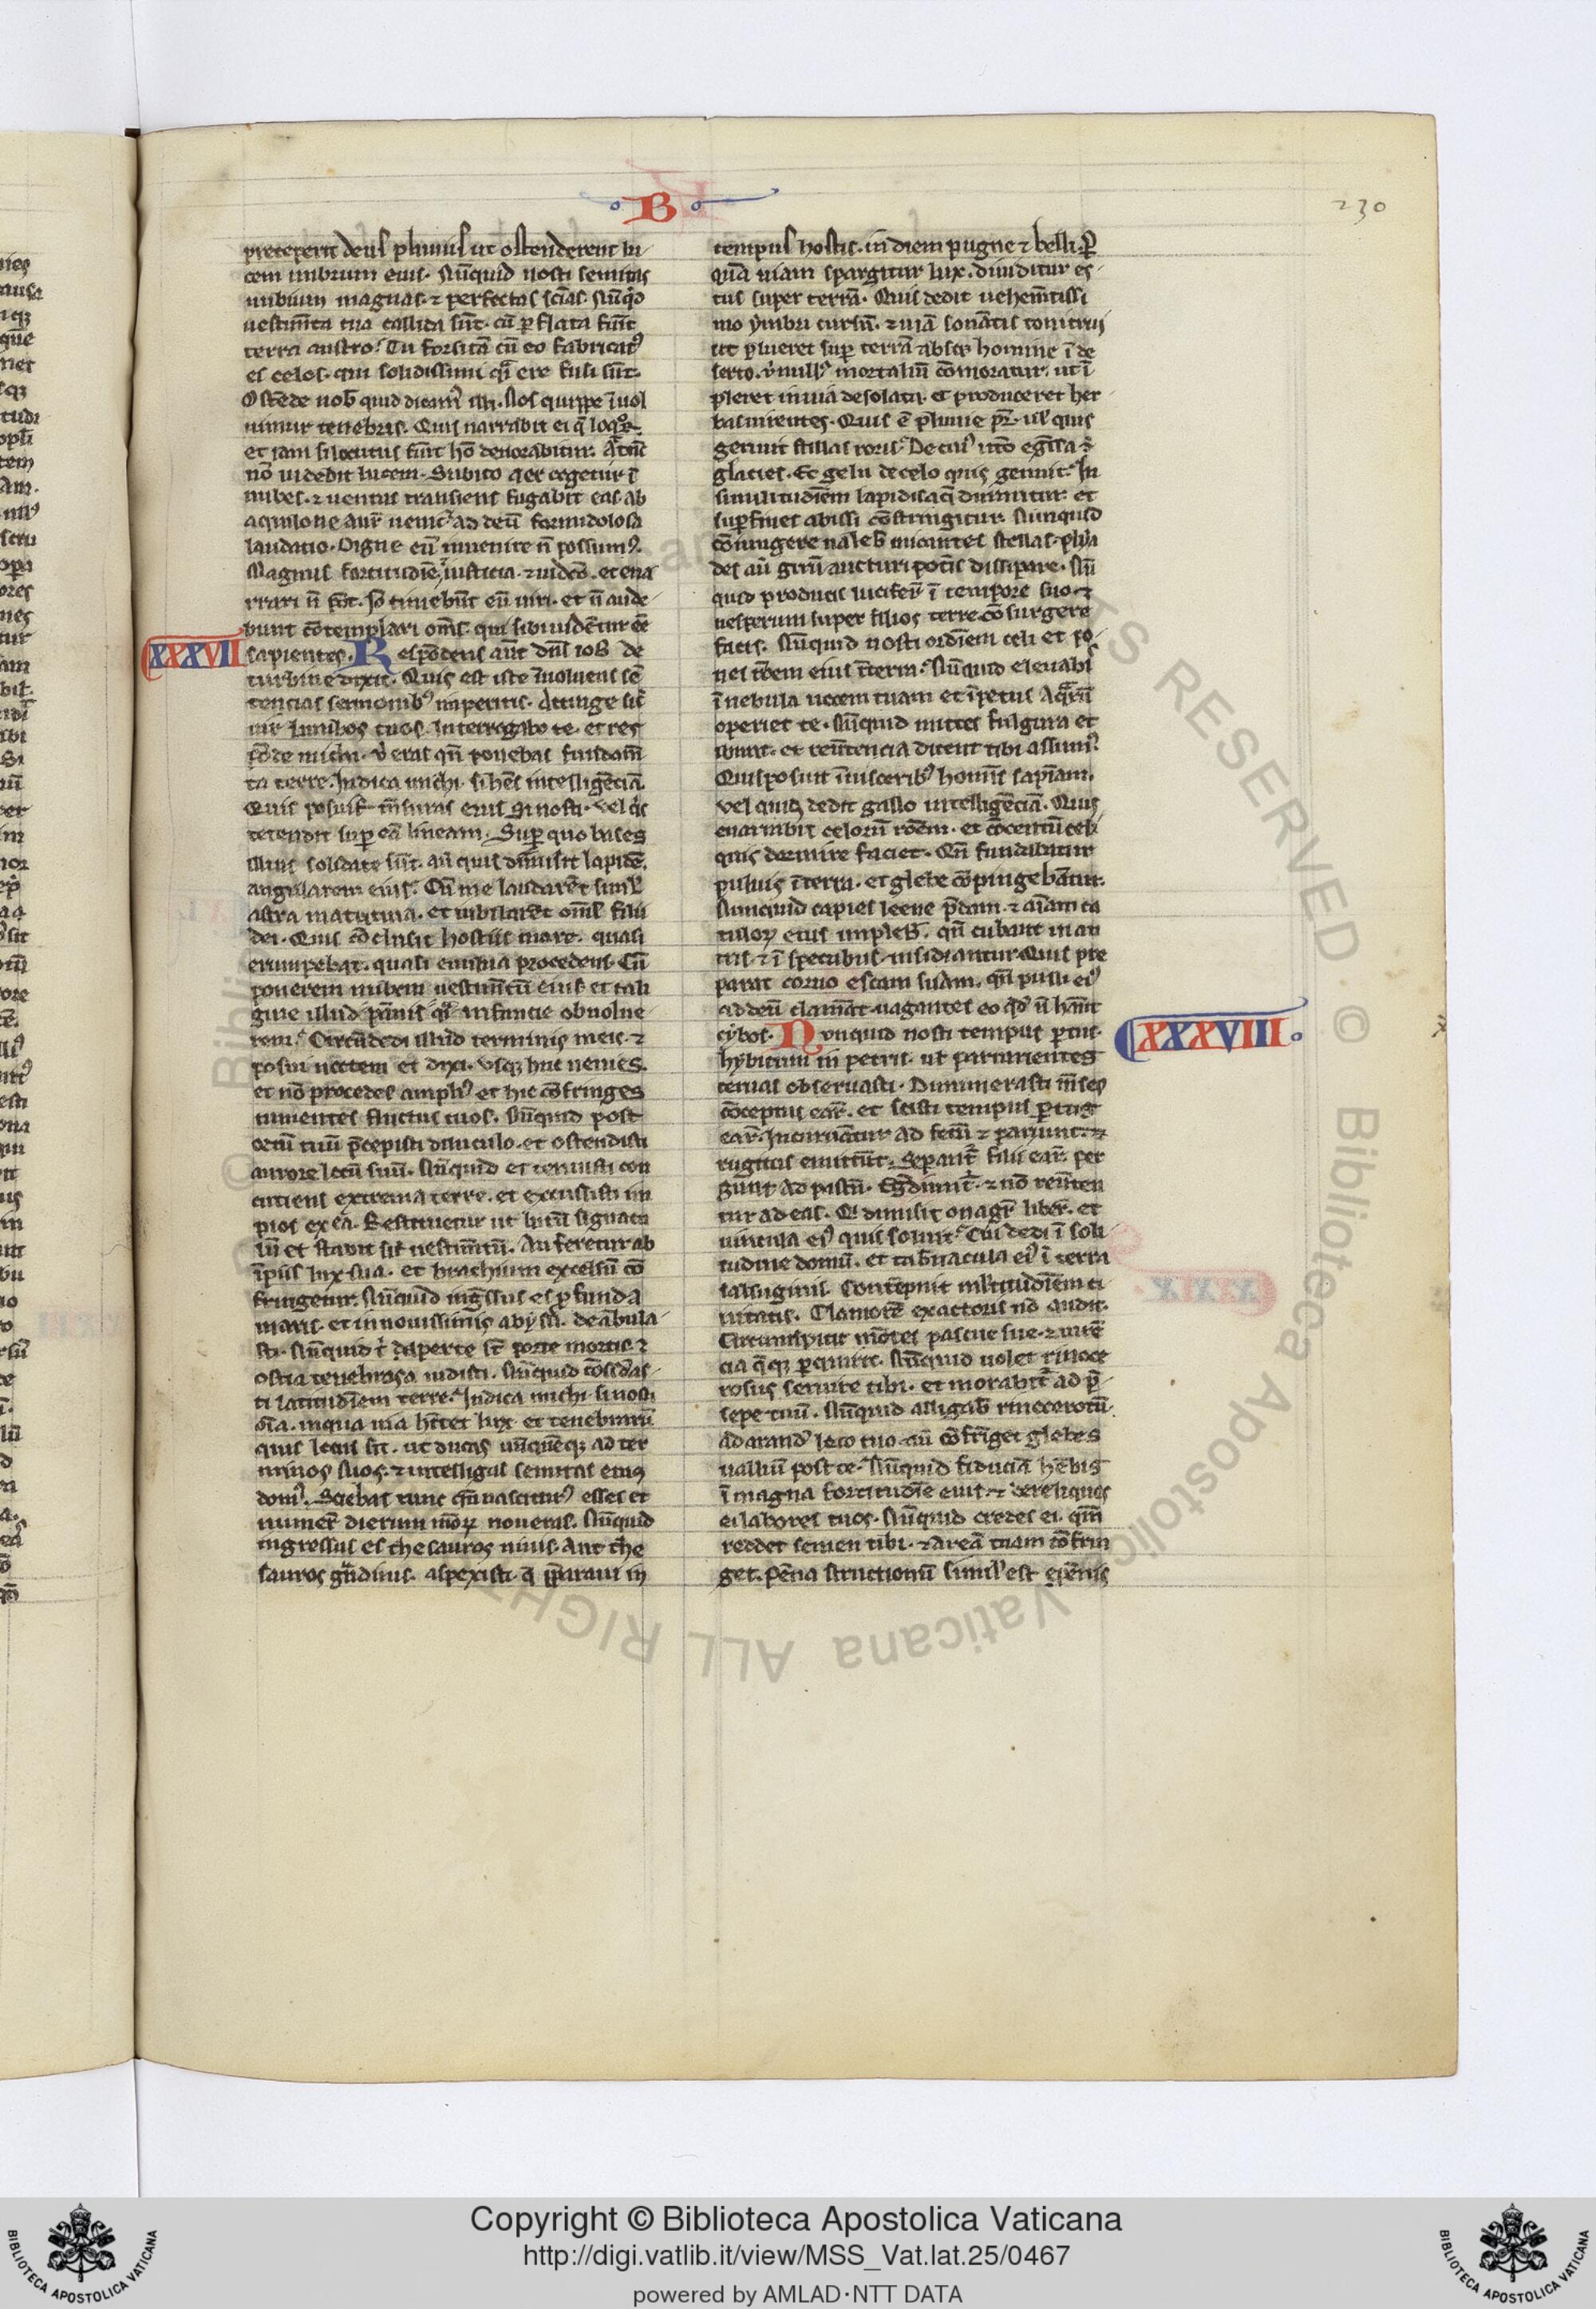 B
230
preceperit deus pluuiis ut ostenderent lu-
cem nubium eius. Nūquid nosti semitas
nubium magnas. ⁊ perfectas sciēas. Nūqͥd
uestimēta tua callida sūt. cū ꝑflata fūit
terra austro? Tu forsitā cū eo fabricatꝰ
es celos. qui solidissimi qͣi ere fusi sūt.
Ostēde nob̄ quid dicamꝰ illi. Nos quippe īuol
uimur tenebris. Quis narrabit ei q̄ loqͦr.
et iam si locutus fūit hō deuorabitur. At nūc
nō uident lucem. Subito aer cogetur ī
nubes. ⁊ uentus transiens fugabit eas. ab
aquilone aur̄ ueniet. ⁊ ad deū formidolosa
laudatio. Digne eū inuenire n̄ possumꝰ.
Magnus fortitudīe, iusticia. ⁊ iudicō. et ena
rrari n̄ pōt. Iō timebūt eū uiri. et n̄ aude
bunt cōtemplari om̄s. qui sibi uidētur ēē
XXXVII
sapientes. Respōdens aūt dn̄s iob de
turbine dixit. Quis est iste īuoluens sē
tencias sermonibꝰ imperitis. Accinge sic̄
uir lumbos tuos. Interrogabo te. et res
pōde michi. Vbi eras qn̄ ponebas fundam̄
ta terre. Indica michi. si hēs intelligēciā.
Quis posuit mēsuras eius si nosti. vel qͥs
tetendit suꝑ eā lineam. Suꝑ quo bases
illius solidate sūt. aū quis dimisit lapidē
angularem eius. Cū me laudarēt simͦl
astra matutina. et iubilarēt om̄s filii
dei. Quis cōclusit hostiis mare. quasi
erumpebat. quasi euulua procedens. Cū
ponerem nubem uestimētū eius. et cali
gine illud pānis qͣi infancie obuolue
rem. Circūdedi illud terminis meis. ⁊
posui uectem et dixi. Vsqꝫ huc uenies.
et nō procedes ampliꝰ et hic cōfringes
tumentes fluctus tuos. Nūquid post
ortū tuū p̄cepisti diluculo. et ostendisti
aurore locū suū. Nūquid et tenuisti con
cutiens extrema terre. et excussisti im
pios ex ea. Restituetur ut lutū signacu
lū et stabit sic̄ uestimētū. Auferetur ab
īpiis lux sua. et brachium excelsū cō
fringetur. Nūquid ingr̄ssus es ꝓfunda
maris. et in nouissimis abyssi. deābula
sti. Nūquid tͥ daperte sūt porte mortis. ⁊
ostia tenebrosa uidisti. Nūquid cōsid̄as
ti latitudīem terre? Indica michi. si nosti
oīa. inqua uia hītet lux. et tenebrarū
quis locus sit. ut ducas unūquēqꝫ ad ter
minos suos. ⁊ intelligas semitas eius
domꝰ. Sciebas tunc qn̄ nasciturꝰ esses et
numeꝝ dierum tuoꝝ noueras. Nūquid
ingressus es thesauros niuis. Aut the
sauros gͣndinis. aspexisti. q̄ p̄paraui in
tempus hostis. in diem pugne ⁊ belli. Ꝑ
quā uiam spargitur lux. diuiditur es-
tus super terrā. Quis dedit uehemētissi
mo ymbri cursū. ⁊ uiā sonātis tonitrui
ut plueret suꝑ terrā absqꝫ homine ī de
serto. vͥ nullꝰ mortaliū cōmoratur. ut ī
pleret inuiā desolatā. et produceret her
bas uirentes. Quis ē pluuie pr̄. uel quis
genuit stillas roris? De cuiꝰ utͦo egr̄ssa ē
glacies. Et gelu de celo quis genuit? In
similitudīem lapidis aq̄ durantur. et
suꝑficies abissi cōstringitur. Nunquid
cōiungere ualeb̄ micantes stellas plya
des aū girū aucturi pot̄is dissipare. Nū
quid producis luciferū ī tempore suo. ⁊
uesperum super filios terre cōsurgere
facis. Nūquid nosti ordīem celi et po-
nes rōem eius ī terra? Nūquid eleuabis
ī nebula uocem tuam et īpetus aqͣrū
operiet te. Nūquid mittes fulgura et
ibunt. et reuētencia dicent tibi assumꝰ?
Quis posuit ī uisceribꝰ homīs sapīam.
vel quis dedit gallo intelligēciā. Quis
enarrabit celorū rōem. et cōcentū celi
quis dormire faciet. Qn̄ fundabatur
puluis ī terra. et glebe cōpingebātur.
Nunquid capies leene p̄dam. ⁊ aīam ca
tuloꝝ eius impleb̄. qn̄ cubant in an
tris. ⁊ ī specubus. insidiantur. Quis pre
parat coruo escam suam. qn̄ pulli eiꝰ
ad deū clamāt. uagantes eo qͦd n̄ hn̄t
XXXVIII
cybos. Nunquid nosti tempus partus
hybicum in petris. ut parturientes
ceruas obseruasti. Dinumerasti mēses
cōceptus eaꝝ. et scisti tempus partus
eaꝝ. Incuruātur ad fetū ⁊ pariunt. ⁊
rugitus emittūt. Separāt̄ filii eaꝝ. per
gunt ad pastū. Egr̄diunt̄. ⁊ nō reuten
tur ad eas. Qͥs dimisit onagrū liberū. et
uincula eiꝰ quis soluit? Cui dedi ī soli
tudine domū. et tab̄nacula eiꝰ ī terra
salsuginis. Contēpnit multitudīem ci
uitatis. Clamorē exactoris nō audit.
Circumspicit mōtes pascue sue. ⁊ uirē
cia q̄qꝫ ꝑquirit. Nūquid uolet rinoce
rosus seruire tibi. et morabit̄ ad p̄
sepe tuū. Nūquid alligab̄ rinocerotū
ad arandū loro tuo. aū cōfrīget glebes
ualliū post te. Nūquid fiduciā hēbis
ī magna fortitudīe eius. ⁊ derelīques
ei labores tuos. Nūquid credes ei. qm̄
reddet semen tibi. ⁊ areā tuam cōfrin
get. Pēna structionū similis est epēnis
Copyright © Biblioteca Apostolica Vaticana
http://digi.vatlib.it/view/MSS_Vat.lat.25/0467
powered by AMLAD·NTT DATA